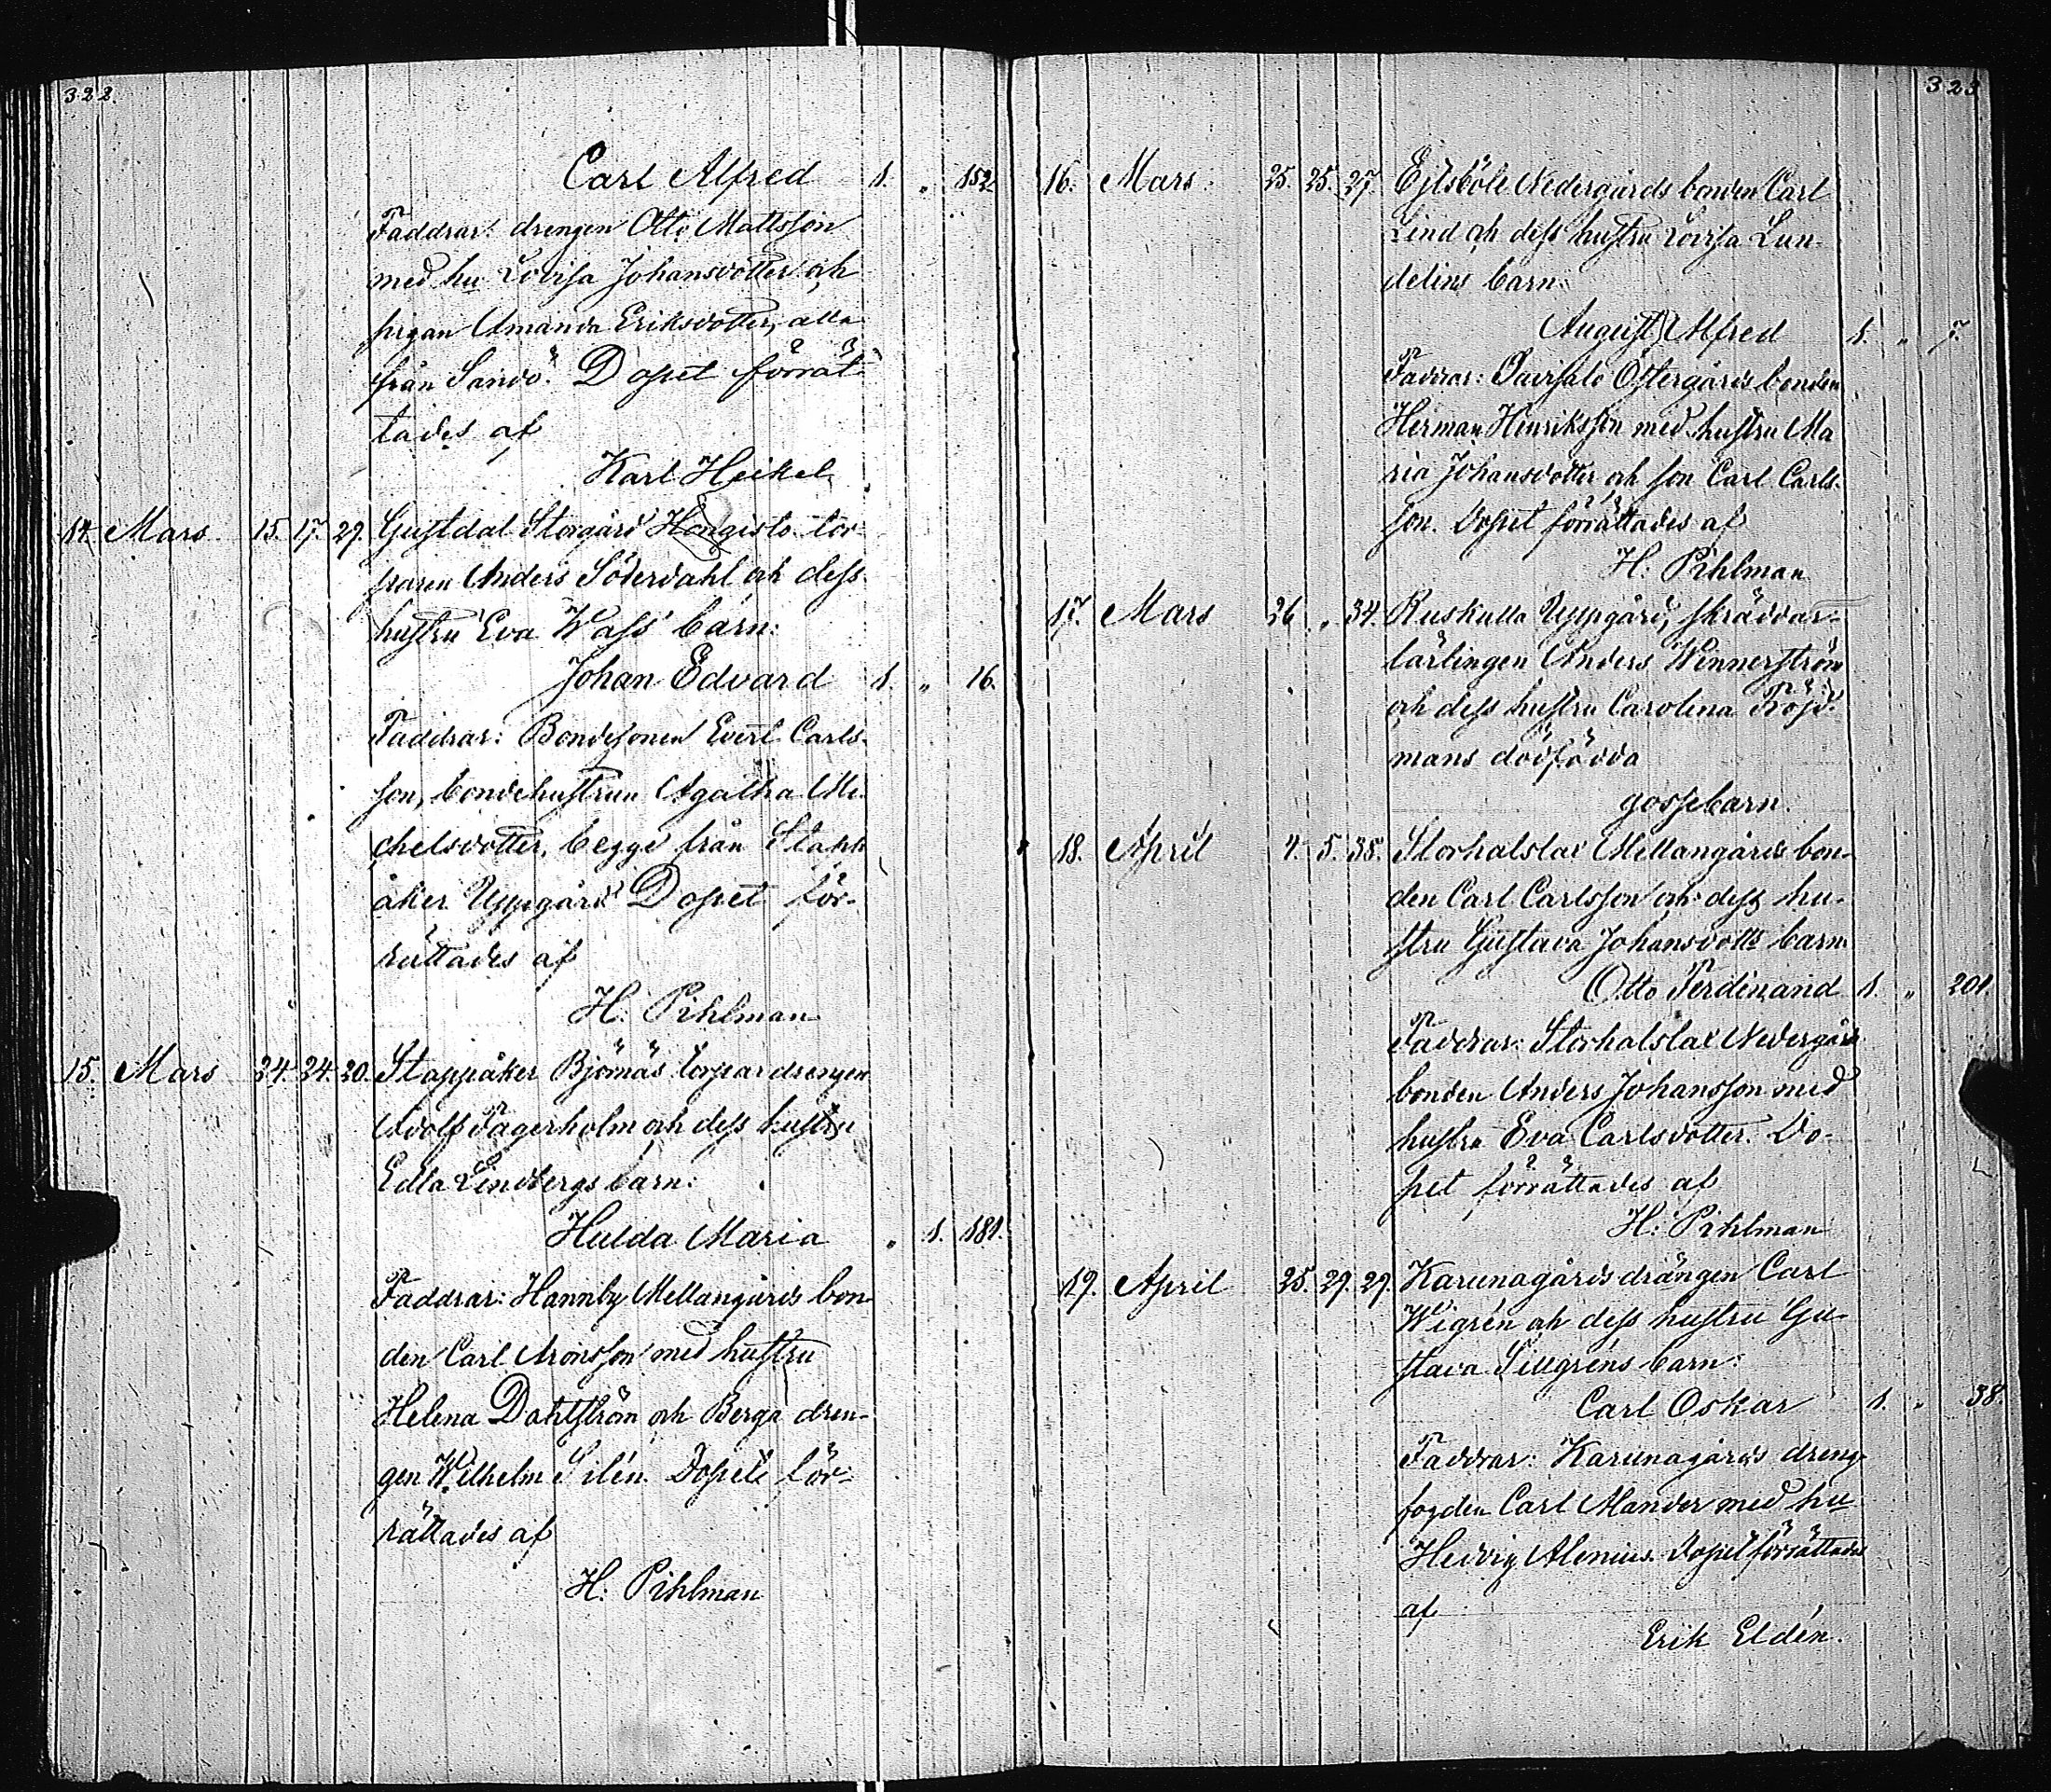 322.
Carl Alfred 1. „ 152.
Faddrar: drengen Otto Mattsson
med hu Lovisa Johansdotter och
pigan Amanda Eriksdotter, alla
från Sandö. Dopet förrät-
tades af
Karl Heikel
14. Mars 15. 17. 29. Gustdal Storgård Hongisto tor-
paren Anders Söderdahl och dess
hustru Eva Wass' barn:
Johan Edvard 1. „ 16.
Faddrar: Bondesonen Evert Carls-
son, bondehustrun Agatha Mi-
chelsdotter, begge från Stapp
åker Uppgård. Dopet för-
rättades af
H. Pihlman
15. Mars 24. 24. 20. Stappåker Björnäs torpar drengen
Adolf Fagerholm och dess hustru
Edla Lindbergs barn:
Hulda Maria „ 1. 181.
Faddrar: Hannby Mellangårds bon-
den Carl Aronsson med hustru
Helena Dahlström och Berga dren-
gen Wilhelm Silén. Dopet för-
rättades af
H. Pihlman
323
16. Mars 25. 25. 27. Ejlsböle Nedergårds bonden Carl
Lind och dess hustru Lovisa Lun-
delins barn:
August Alfred 1. „ 7.
Faddrar: Östergårds bonden
Herman Henriksson med hustru Ma
ria Johansdotter och son Carl Carls-
son. Dopet förrättades af
H. Pihlman
17. Mars 26 „ 34. Ruskulla Uppgård, skräddar-
lärlingen Anders Wennerström
och dess hustru Carolina Fröjd-
mans dödfödda
gossebarn.
18. April 4. 5. 35. Storhalslax Mellangårds bon-
den Carl Carlsson och dess hu-
stru Gustava Johansdotts barn
Otto Ferdinand 1. „ 201.
Faddrar: Storhalslax Nedergårds
bonden Anders Johansson med
hustru Eva Carlsdotter. Do-
pet förrättades af
H. Pihlman
19. April 25. 29. 29. Karunagårds drängen Carl
Wigrén och dess hustru Gu-
stava Sillgréns barn:
Carl Oskar 1. „ 38.
Faddrar: Karunagårds dreng-
fogden Carl Mander med hu
Hedvig Alenius. Dopet förrättades
af
Erik Eldén.